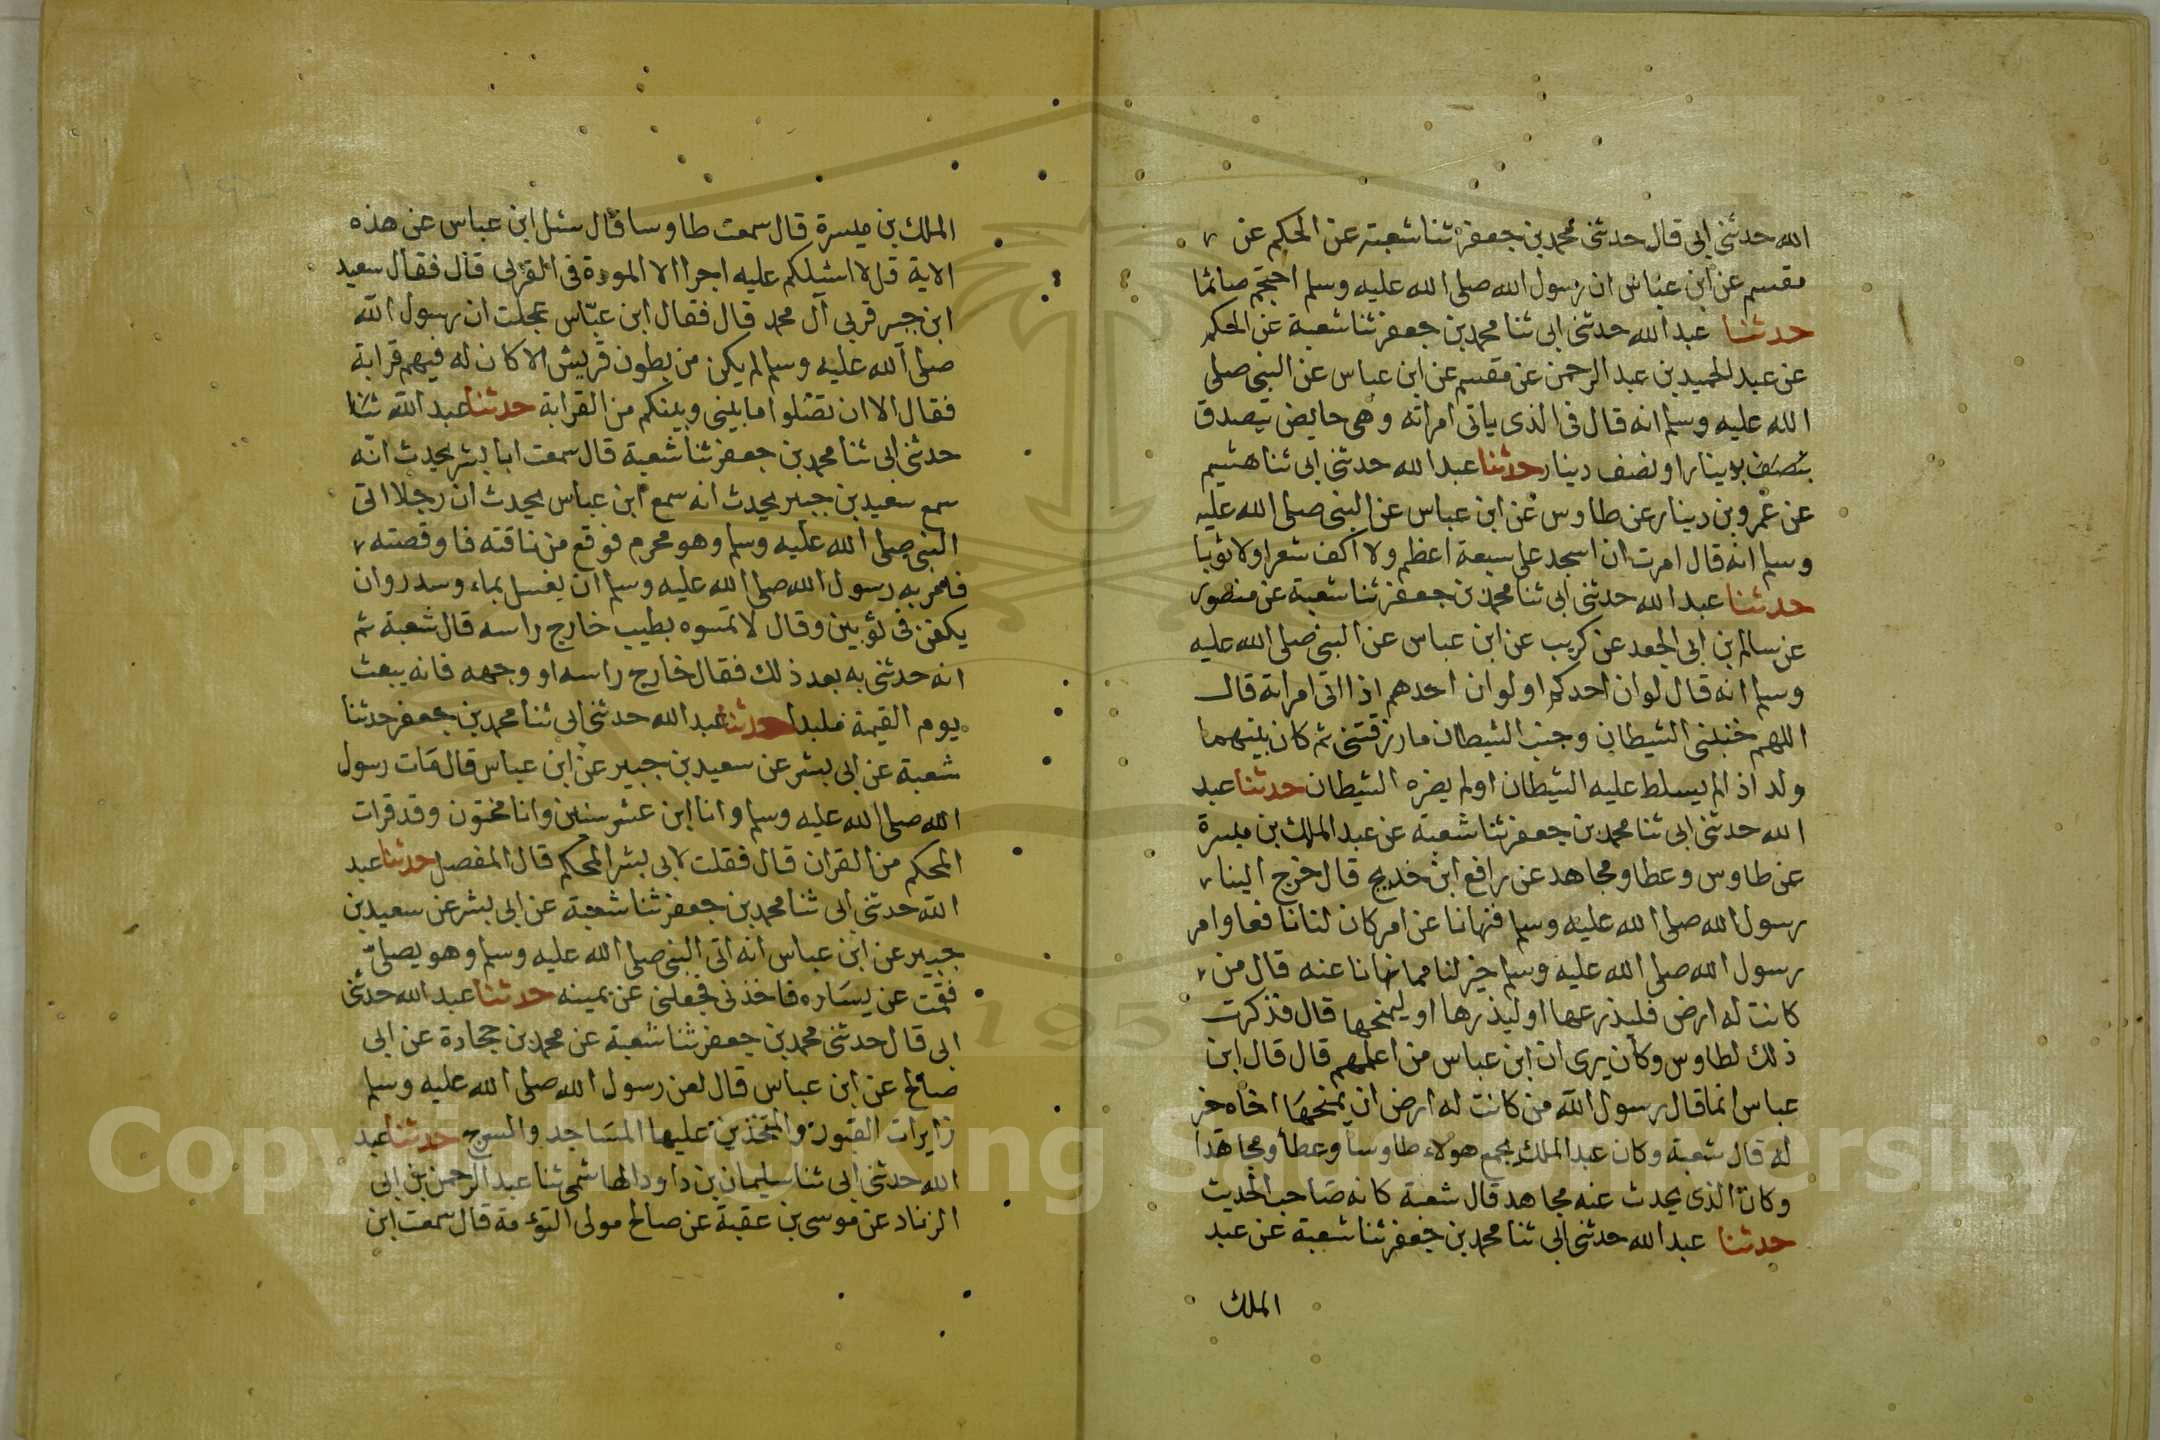 الله حدثني ابي قال حدثني محمد بن جعفر ثنا شعبة عن الحكم عن
مقسم عن ابن عباس ان رسول الله صلى الله عليه وسلم احتجم صائما
حدثنا عبد الله حدثني ابي ثنا محمد بن جعفر ثنا شعبة عن الحكم
عن عبد الحميد بن عبد الرحمن عن مقسم عن ابن عباس عن النبي صلى
الله عليه وسلم انه قال في الذي ياتي امراته وهي حايض يتصدق
بدينار او نصف دينار حدثنا عبد الله حدثني ابي ثنا هشيم
عن عمرو بن دينار عن طاوس عن ابن عباس عن النبي صلى الله عليه
وسلم انه قال امرت ان اسجد على سبعة اعظم ولا اكف شعرا ولا ثوبا
حدثنا عبد الله حدثني ابي ثنا محمد بن جعفر ثنا شعبة عن منصور
عن سالم بن ابي الجعد عن كريب عن ابن عباس عن النبي صلى الله عليه
وسلم انه قال لو ان احدكم او لو ان احدهم اذا اتى امراته قال
اللهم جنبني الشيطان وجنب الشيطان ما رزقتني ثم كان بينهما
ولد اذ الم يسلط عليه الشيطان او لم يضره الشيطان حدثنا عبد
الله حدثني ابي ثنا محمد بن جعفر ثنا شعبة عن عبد الملك بن ميسرة
عن طاوس وعطا ومجاهد عن رافع ابن خديج قال خرج الينا
رسول الله صلى الله عليه وسلم فنهانا عن امر كان لنا نافعا وامر
رسول الله صلى الله عليه وسلم خير لنا مما نهانا عنه قال من
كانت له ارض فليزرعها او ليذرها او ليمنحها قال فذكرت
ذلك لطاوس وكان يرى ان ابن عباس من اعلمهم قال قال ابن
عباس انما قال رسول الله من كانت له ارض ان يمنحها اخاه خير
له قال شعبة وكان عبد الملك يجمع هولاء طاوسا وعطا ومجاهدا
وكان الذي يحدث عنه مجاهد قال شعبة كانه صاحب الحديث
حدثنا عبد الله حدثني ابي ثنا محمد بن جعفر ثنا شعبة عن عبد
الملك
الملك بن ميسرة قال سمعت طاوسا قال سئل ابن عباس عن هذه
الاية قل لا اسئلكم عليه اجرا الا المودة في القربى قال فقال سعيد
ابن جبير قربى آل محمد قال فقال ابن عباس عجلت ان رسول الله
صلى الله عليه وسلم لم يكن من بطون قريش الا كان له فيهم قرابة
فقال الا ان تصلوا ما بيني وبينكم من القرابة حدثنا عبد الله ثنا
حدثني ابي ثنا محمد بن جعفر ثنا شعبة قال سمعت ابا بشر يحدث انه
سمع سعيد بن جبير يحدث انه سمع ابن عباس يحدث ان رجلا اتى
النبي صلى الله عليه وسلم وهو محرم فوقع من ناقته فاوقصته
فامر به رسول الله صلى الله عليه وسلم ان يغسل بماء وسدر وان
يكفن في ثوبين وقال لا تمسوه بطيب خارج راسه قال شعبة ثم
انه حدثني به بعد ذلك فقال خارج راسه او وجهه فانه يبعث
يوم القيمة ملبدا حدثنا عبد الله حدثني ابي ثنا محمد بن جعفر حدثنا
شعبة عن ابي بشر عن سعيد بن جبير عن ابن عباس قال مات رسول
الله صلى الله عليه وسلم وانا ابن عشر سنين وانا مختون وقد قرات
المحكم من القران قال فقلت لابي بشر المحكم قال المفصل حدثنا عبد
الله حدثني ابي ثنا محمد بن جعفر ثنا شعبة عن ابي بشر عن سعيد بن
جبير عن ابن عباس انه اتى النبي صلى الله عليه وسلم وهو يصلي
فقمت عن يساره فاخذني فجعلني عن يمينه حدثنا عبد الله حدثني
ابي قال حدثني محمد بن جعفر ثنا شعبة عن محمد بن جحادة عن ابي
صالح عن ابن عباس قال لعن رسول الله صلى الله عليه وسلم
زايرات القبور والمتخذين عليها المساجد والسرج حدثنا عبد
الله حدثني ابي ثنا سليمان بن داود الهاشمي ثنا عبد الرحمن بن ابي
الزناد عن موسى بن عقبة عن صالح مولى التوءمة قال سمعت ابن
1957
Copyright © King Saud University